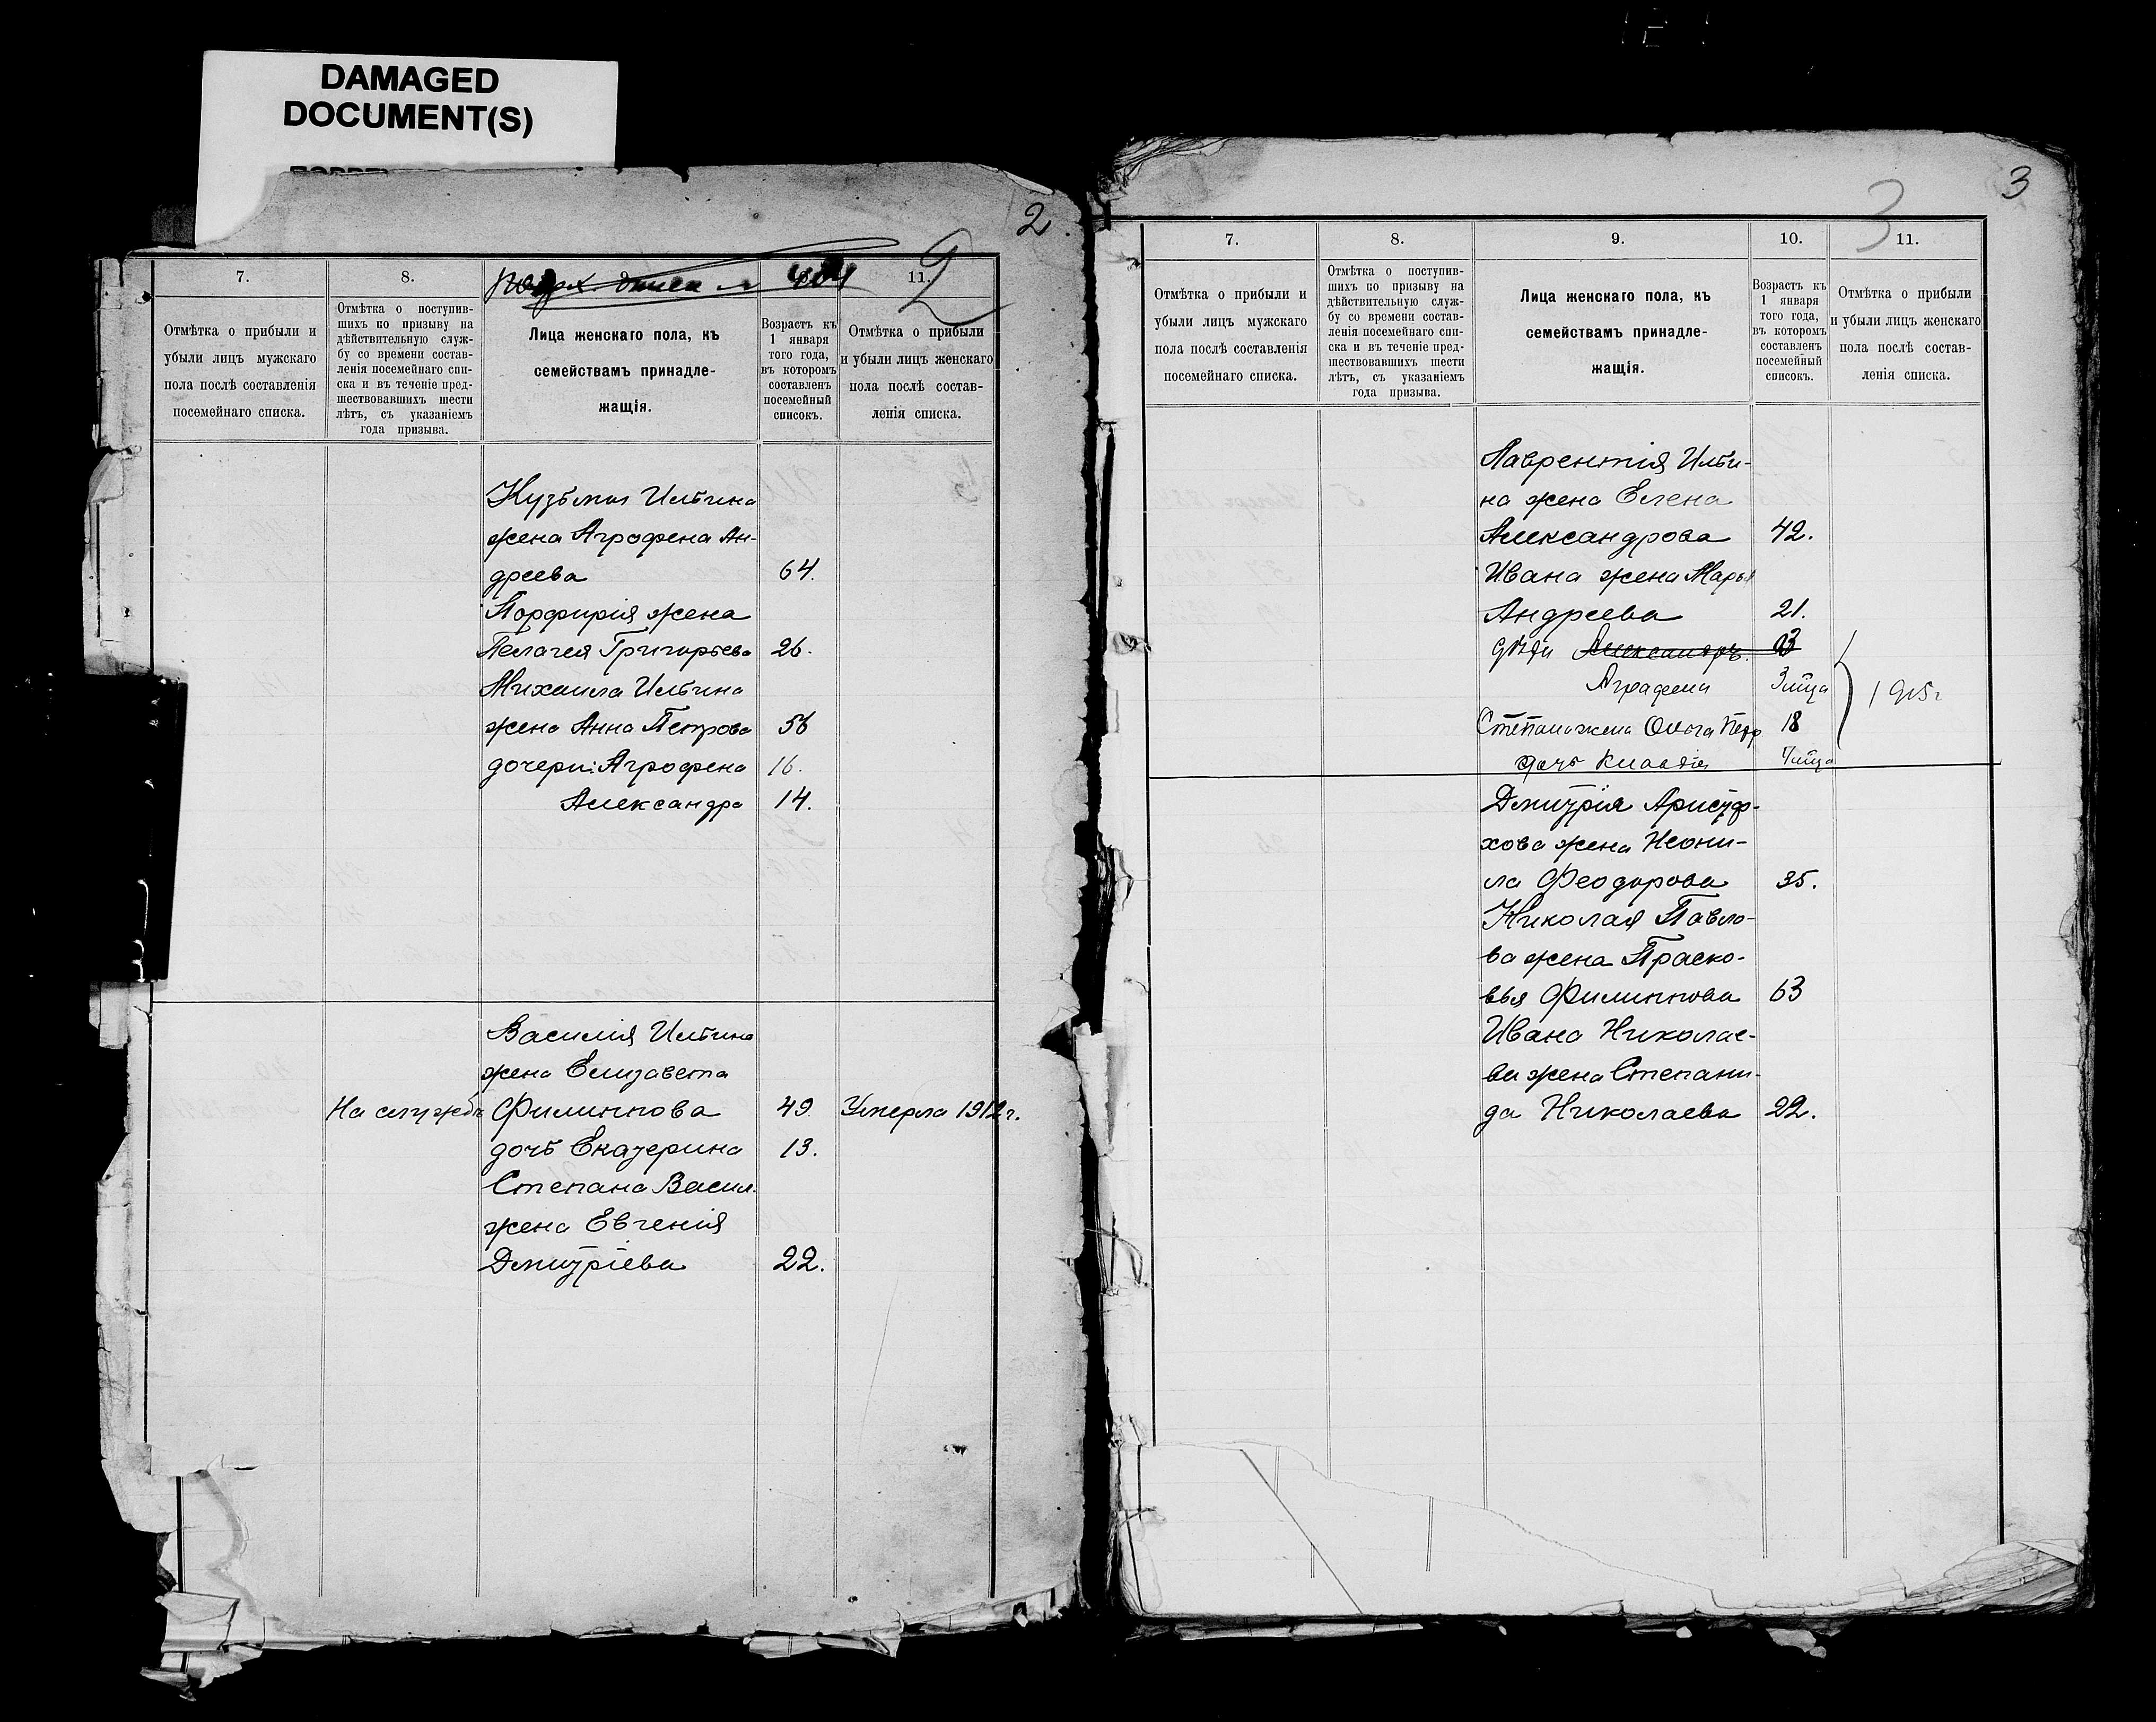 DAMAGED
DOCUMENT(S)
2
7.
8.
11.
2
Отмѣтка о прибыли и
убыли лицъ мужскаго
пола послѣ составленія
посемейнаго списка.
Отмѣтка о поступив-
шихъ по призыву на
дѣйствительную служ-
бу со времени состав-
ленія посемейнаго спи-
ска и въ теченіе пред-
шествовавшихъ шести
лѣтъ, съ указаніемъ
года призыва.
Лица женскаго пола, къ
семействамъ принадле-
жащія.
Возрастъ къ
1 января
того года,
въ которомъ
составленъ
посемейный
списокъ.
Отмѣтка о прибыли
и убыли лицъ женскаго
пола послѣ состав-
ленія списка.
Кузьмы Ильина
жена Агрофена Ан-
дреева 64.
Порфирія жена
Пелагея Григорьева 26.
Михаила Ильина
жена Анна Петрова 56
дочери: Агрофена 16.
Александра 14.
Василія Ильина
жена Елизавета
На службѣ Филиппова 49. Умерла 1912 г.
дочь Екатерина 13.
Степана Васил.
жена Евгенія
Дмитріева 22.
3
3
7.
8.
9.
10.
11.
Отмѣтка о прибыли и
убыли лицъ мужскаго
пола послѣ составленія
посемейнаго списка.
Отмѣтка о поступив-
шихъ по призыву на
дѣйствительную служ-
бу со времени состав-
ленія посемейнаго спи-
ска и въ теченіе пред-
шествовавшихъ шести
лѣтъ, съ указаніемъ
года призыва.
Лица женскаго пола, къ
семействамъ принадле-
жащія.
Возрастъ къ
1 января
того года,
въ которомъ
составленъ
посемейный
списокъ.
Отмѣтка о прибыли
и убыли лицъ женскаго
пола послѣ состав-
ленія списка.
Лаврентія Ильи-
на жена Елена
Александрова 42.
Ивана жена Марья
Андреева 21.
дѣти Александръ
Аграфена 3 мца 1915 г
Степана жена Ольга Петр 18
дочь Клавдія 7 мца
Дмитрія Аристар-
хова жена Неони-
ла Феодорова 35.
Николая Павло-
ва жена Праско-
вья Филиппова 63
Ивана Николае-
ва жена Степани-
да Николаева 22.